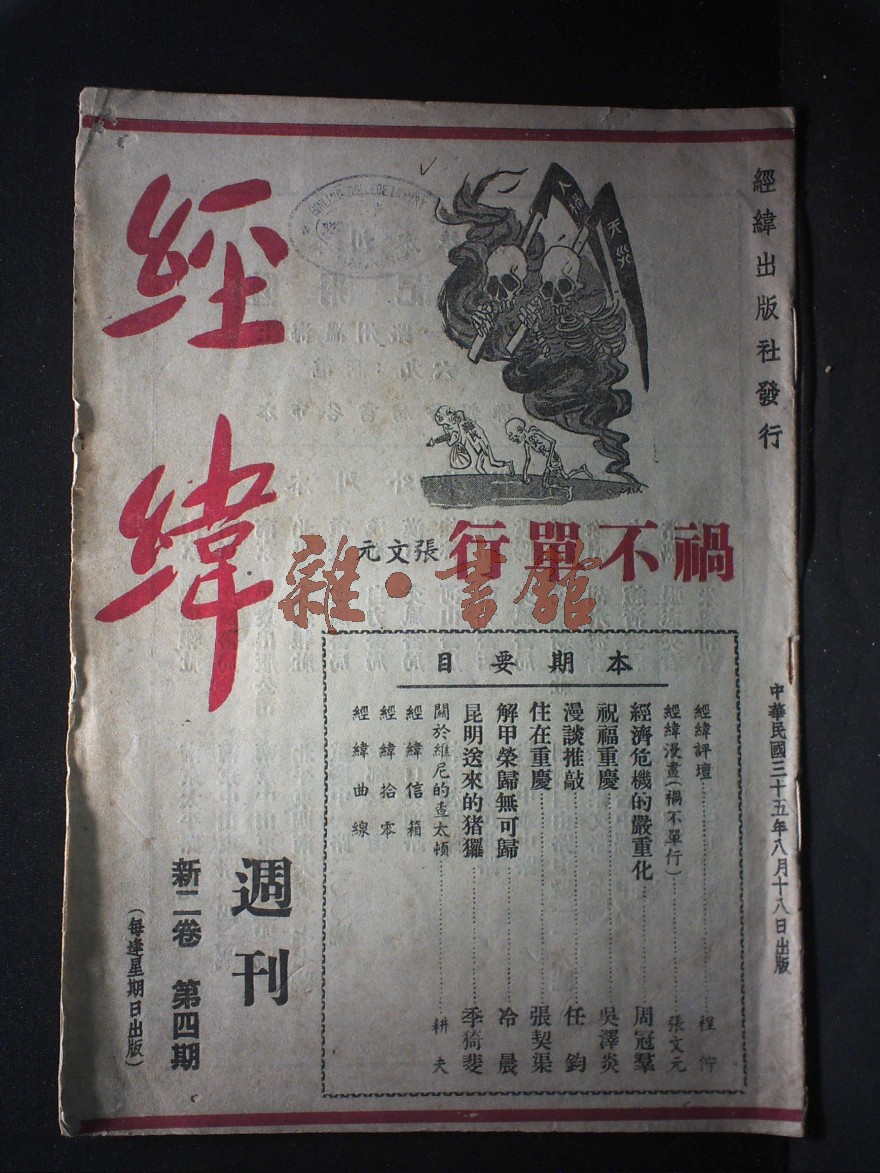 經緯出版社發行
中華民國三十五年八月十八日出版
人禍
天災
禍不單行
張文元
雜·書館
本期要目
經緯評壇 程佇
經緯漫畫(禍不單行) 張文元
經濟危機的嚴重化 周冠羣
祝福重慶 吳澤炎
漫談推敲 任鈞
住在重慶 張契渠
解甲榮歸無可歸 冷晨
昆明送來的猪玀 季猗斐
關於維尼的查太頓 耕夫
經緯信箱
經緯拾零
經緯曲線
經緯
週刊
新二卷 第四期
(每逢星期日出版)